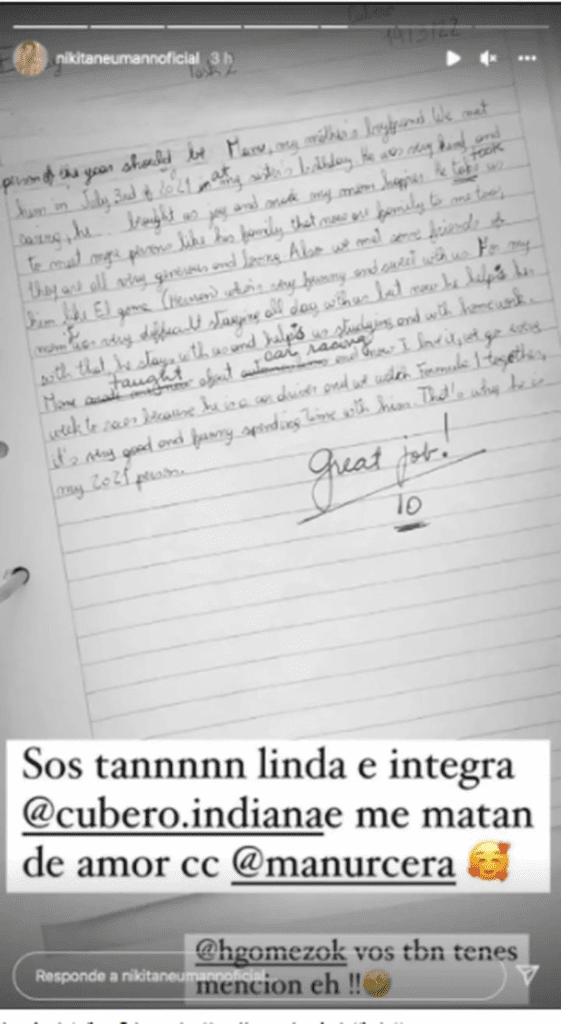 14/3/22
nikitaneumannoficial 3 h
Task 2
person of the year should be Manu, my mother's boyfriend. We met
him in July 3rd of 2021 in at my sister's birthday. He was very kind and
caring, he brought us joy and made my mom happier. He take took us
to meet more persons like his family, that now are family to me too,
they are all very generous and loving. Also we met some friends of
him like El gome (Hernan) who's very funny and sweet with us. For my
mom was very difficult staying all day with us but now he helps her
with that, he stays with us and helps us studying and with homework.
Manu taught about car racing and now I love it, we go every
week to races because he is a car driver and we watch Formula 1 together,
it's very good and funny spending time with him. That's why he is
my 2021 person.
Great job!
10
Sos tannnnn linda e integra
@cubero.indianae me matan
de amor cc @manurcera 🥰
@hgomezok vos tbn tenes
mencion eh !!
Responde a nikitaneumannoficial